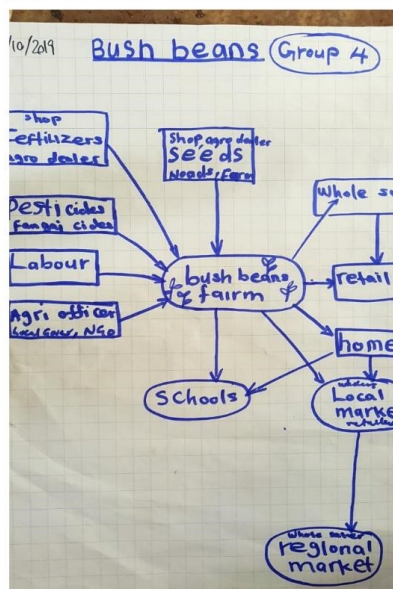 /10/2019
Bush beans
Group 4
shop
Fertilizers
agro dealer
Shop, agro dealer
seeds
Naads, Farm
Pesticides
Fangai cides
Labour
Agri officer
Local Gover, NGO
bush beans
fairm
Whole s
retail
home
Schools
Local
market
Whole saler
regional
market